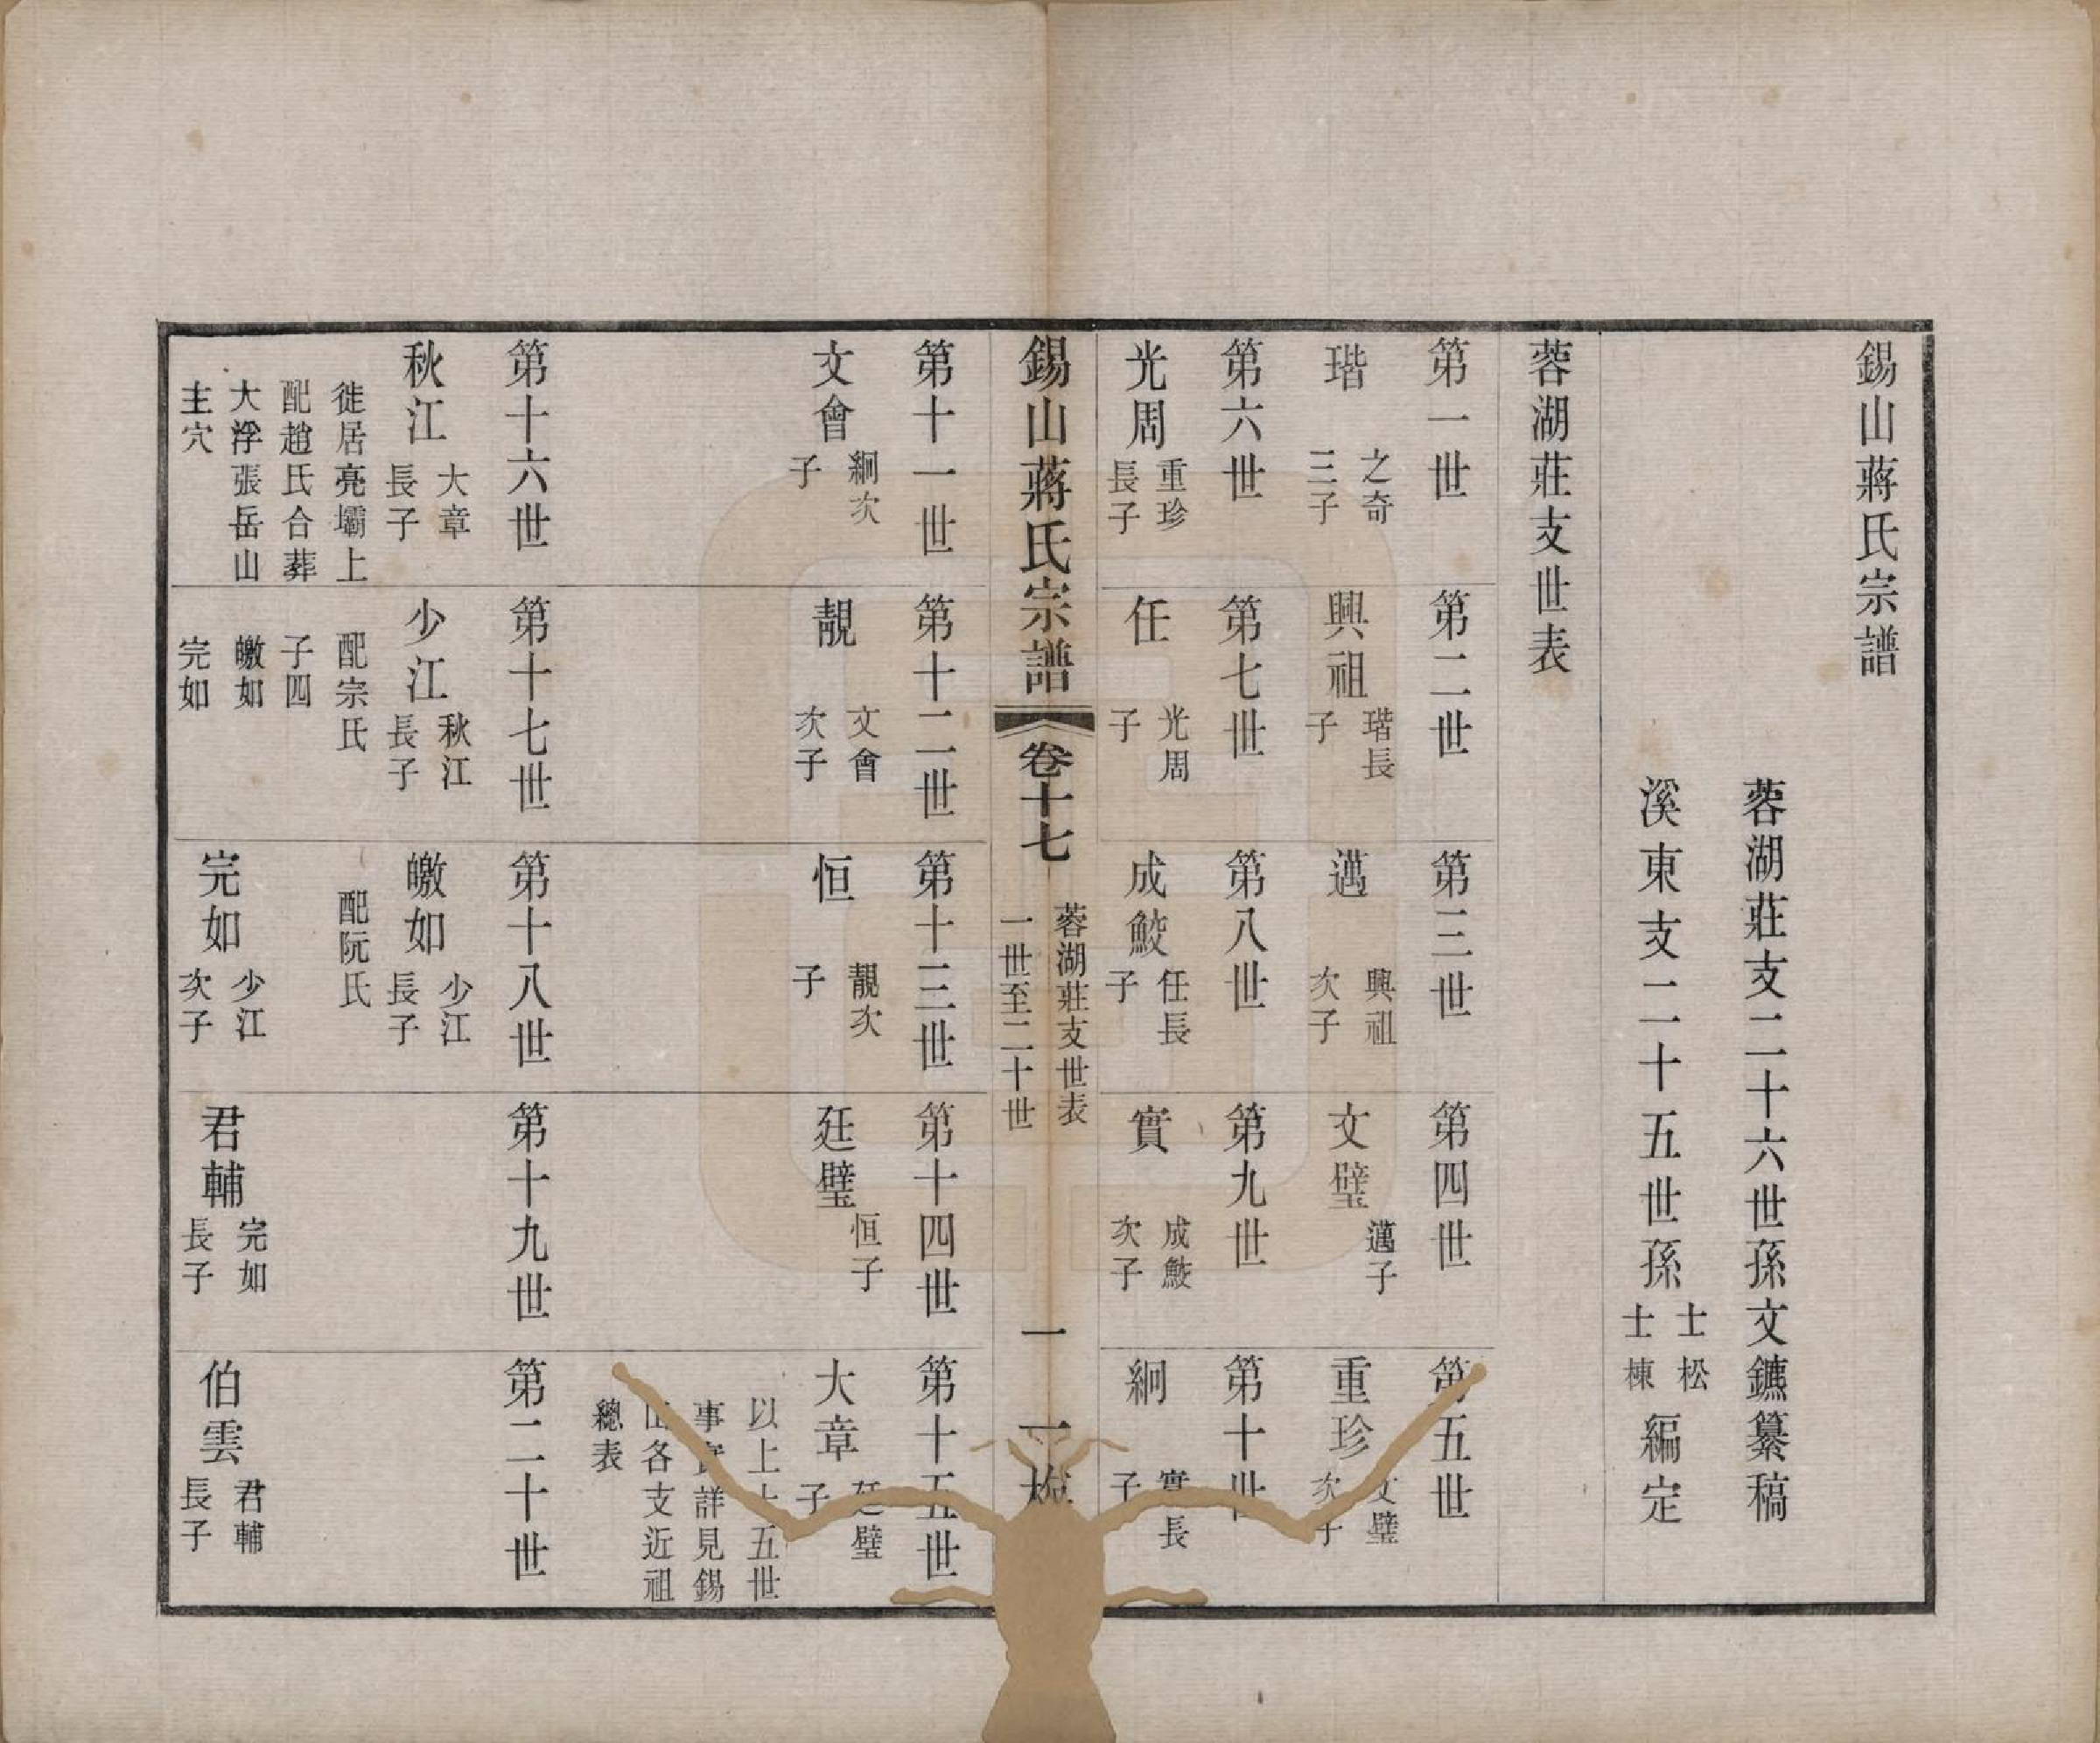 錫山蔣氏宗譜
蓉湖莊支二十六世孫文鑣纂稿
溪東支二十五世孫士松士棟編定
蓉湖莊支世表
第一世
瑎 之奇三子
第二世
興祖 瑎長子
第三世
邁 興祖次子
第四世
文璧 邁子
第五世
重珍 文璧次子
第六世
光周 重珍長子
第七世
任 光周子
第八世
成鮫 任長子
第九世
實 成鮫次子
第十世
絅 實長子
錫山蔣氏宗譜 卷十七 蓉湖莊支世表 一世至二十世 一 一
第十一世
文會 絅次子
第十二世
靚 文會次子
第十三世
恒 靚次子
第十四世
廷璧 恒子
第十五世
大章 廷璧子
以上十五世
事實詳見錫
山各支近祖
總表
第十六世
秋江 大章長子
徙居亮壩上
配趙氏合葬
大浮張岳山
主穴
第十七世
少江 秋江長子
配宗氏
子四
皦如
完如
第十八世
皦如 少江長子
配阮氏
完如 少江次子
第十九世
君輔 完如長子
第二十世
伯雲 君輔長子